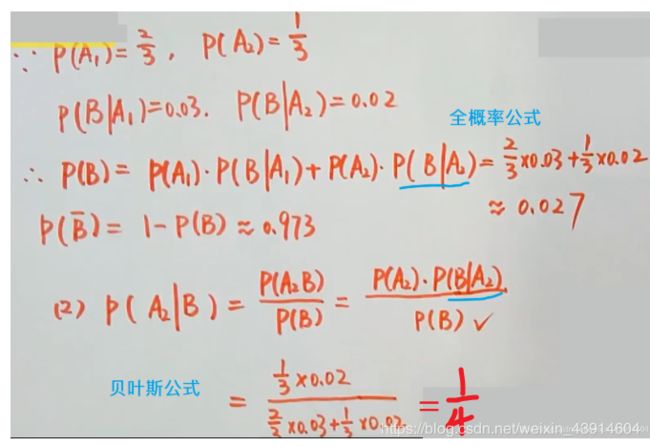 ∵ P(A₁)=2/3, P(A₂)=1/3
P(B|A₁)=0.03. P(B|A₂)=0.02
全概率公式
∴ P(B)= P(A₁)·P(B|A₁)+P(A₂)·P(B|A₂)=2/3×0.03+1/3×0.02
≈0.027
P(B̄)= 1-P(B)≈0.973
(2) P(A₂|B) = P(A₂B)/P(B) = P(A₂)·P(B|A₂)/P(B) ✓
贝叶斯公式
= (1/3×0.02)/(2/3×0.03+1/3×0.02) = 1/4
https://blog.csdn.net/weixin_43914604